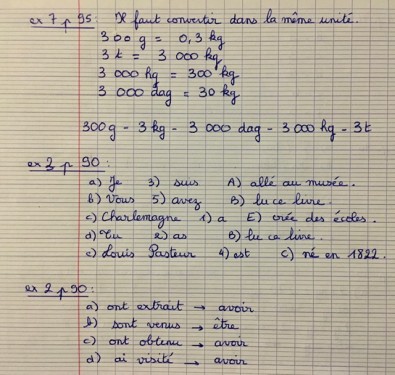 ex 7 p 95 : Il faut convertir dans la même unité.
300 g = 0,3 kg
3 t = 3 000 kg
3 000 hg = 300 kg
3 000 dag = 30 kg
300 g - 3 kg - 3 000 dag - 3 000 hg - 3 t
ex 3 p 90 :
a) Je 3) suis A) allé au musée.
b) Vous 5) avez B) lu ce livre.
c) Charlemagne 1) a E) créé des écoles.
d) Tu 2) as B) lu ce livre.
e) Louis Pasteur 4) est C) né en 1822.
ex 2 p 90 :
a) ont extrait → avoir
b) sont venus → être
c) ont obtenu → avoir
d) ai visité → avoir